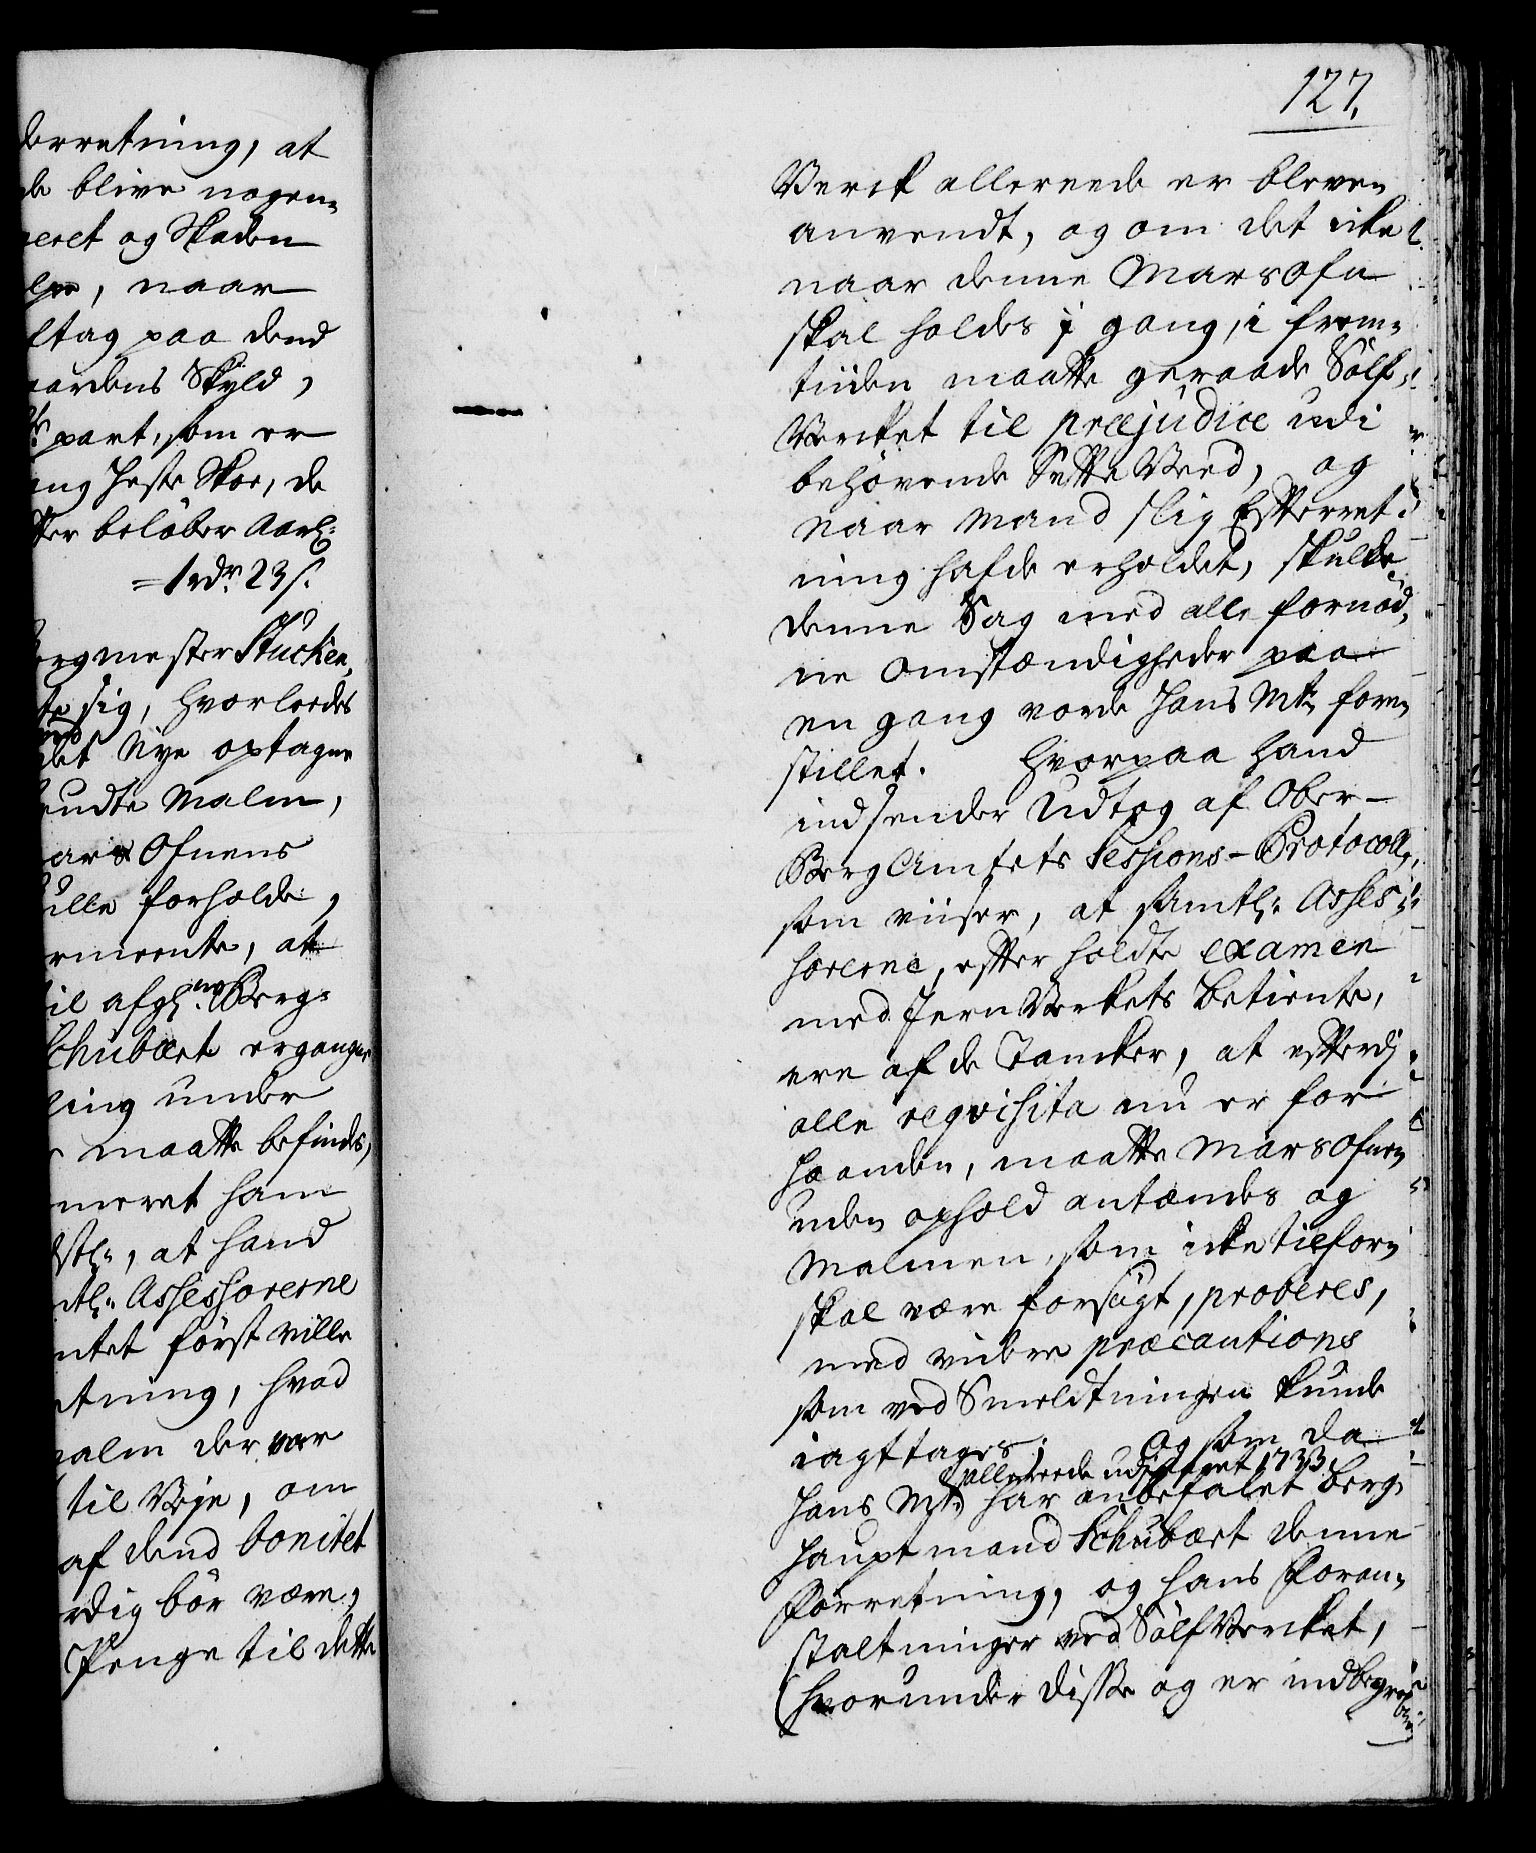 derretning, at
de blive nogen-
neret og Skaden
, naar
ltag paa dend
aardens Skyld,
part, som er
ang Heste Skoe, de
ter beløber Aarl:
= 1 rdr. 23 s.
ergmester Stucken-
te sig, hvorledes
ved
det Nye optagne
brudte Malm,
ars Ofnens
ulle forholde,
rmeente, at
til afg: Berg-
Schubært ergangne
ling under
maatte befindes,
meret ham
stl:, at hand
mtl: Assessorerne
ntet først ville
etning, hvad
malm der var
til Veje, om
af dend bonitet
rdig bör være,
Penge til dette
127.
Verck allereede er bleven
anvendt, og om det icke
naar denne MarsOfn
skal holdes i gang, i frem-
tiiden maatte geraade Sölf-
Vercket til præjudice udi
behövende Sette Veed, og
naar Mand slig Efterret-
ning hafde erholdet, skulde
denne Sag med alle fornöd-
ne Omstændigheder paa
en gang vorde Hans Mt: fore-
stillet. Hvorpaa Hand
indsender Udtog af Ober-
BergAmtets Sessions-Protocoll,
som viiser, at samtl: Asses-
sorerne, efter holdte examen
med JernVerkets Betiente,
ere af de Tancker, at efterdj
alle reqvisita nu er for
Haanden, maatte MarsOfnen
uden ophold antændes og
Malmen, som icke tilforn
skal være forsögt, proberes,
med videre præcautions
som ved Smeldtningen kunde
iagttages; Og som da
allereede udi 1733
Hans Mt: har anbefalet Berg-
Hauptmand Schubært denne
Forretning, og hans Foran-
staltninger ved SölfVercket,
(hvorunder disse og er indbegre-
ben